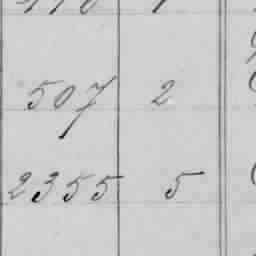 507 2
2355 5